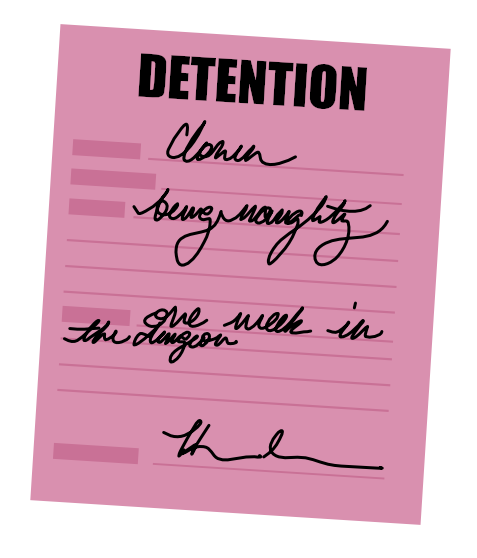 DETENTION
being naughty
one week in
the dungeon